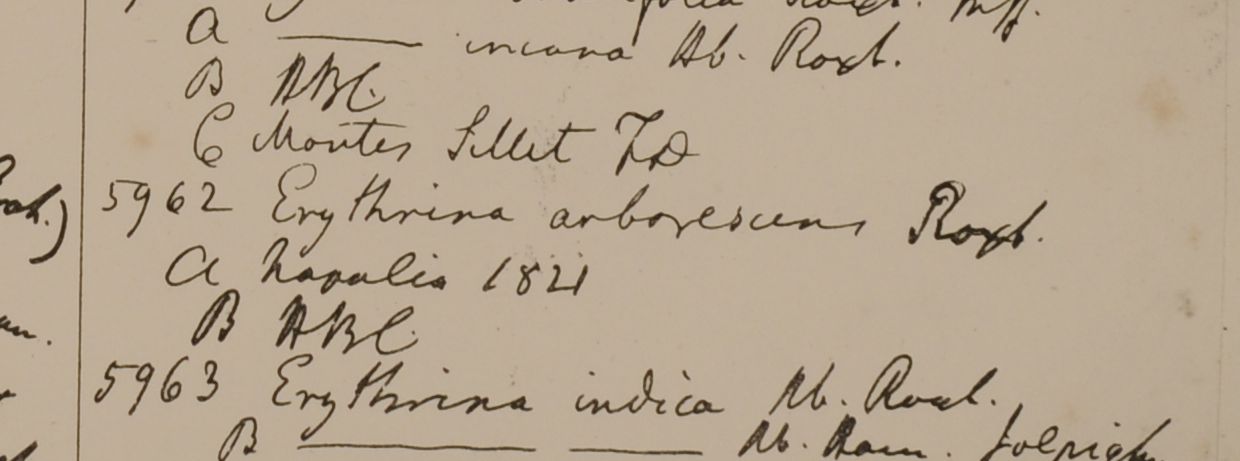 A ——— incana Hb. Roxb.
B HBC.
C Montes Sillet FD
5962 Erythrina arborescens Roxb.
A Napalia 1821
B HBC.
5963 Erythrina indica Hb. Roxb.
B ——— ——— Hb. Ham.